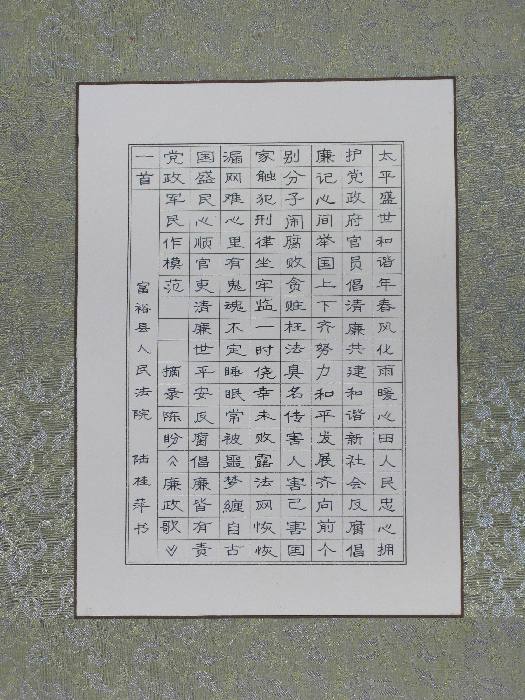 太平盛世和谐年春风化雨暖心田人民忠心拥
护党政府官员倡清廉共建和谐新社会反腐倡
廉记心间举国上下齐努力和平发展齐向前个
别分子闹腐败贪赃枉法臭名传害人害己害国
家触犯刑律坐牢监一时侥幸未败露法网恢恢
漏网难心里有鬼魂不定睡眠常被噩梦缠自古
国盛民心顺官吏清廉世平安反腐倡廉皆有责
党政军民作模范 摘录陈盼《廉政歌》
一首 富裕县人民法院 陆桂萍书